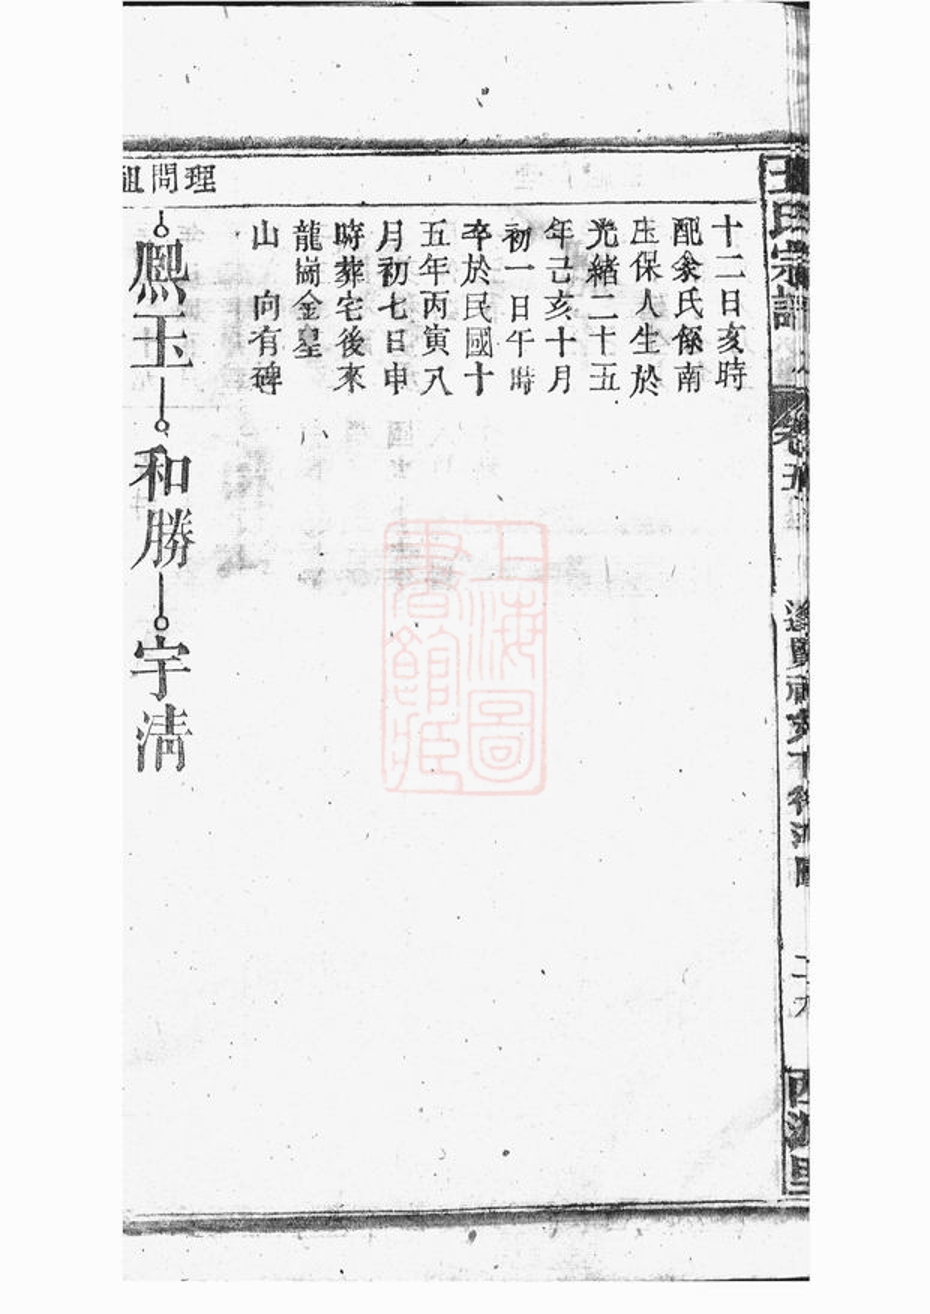 王氏宗譜
十二日亥時
配余氏係南
庄保人生於
光緒二十五
年己亥十月
初一日午時
卒於民國十
五年丙寅八
月初七日申
時葬宅後來
龍崗金星
山　向有碑
理問祖
熈玉—和勝—宇清
上海圖書館藏